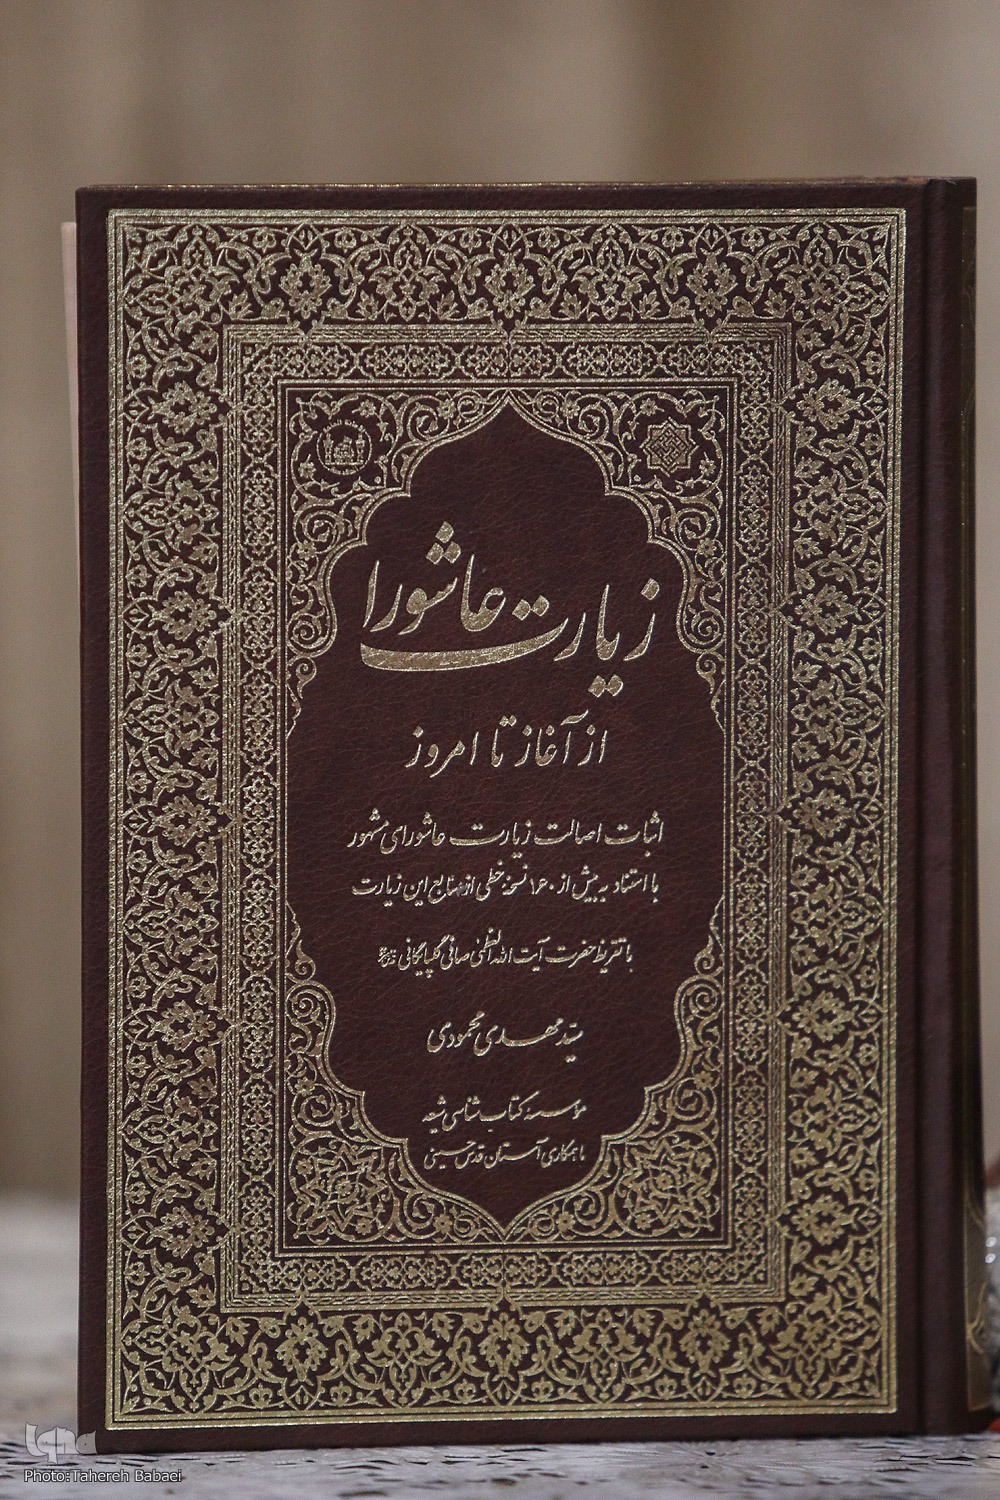 زیارت عاشورا
از آغاز تا امروز
اثبات اصالت زیارت عاشورای مشهور
با استناد به بیش از ۱۶۰ نسخه خطی از منابع این زیارت
با تقریظ حضرت آیت الله العظمی صافی گلپایگانی
سید مهدی محمودی
مؤسسه کتاب شناسی شیعه
با همکاری آستان قدس حسینی
iqna
Photo:Tahereh Babaei